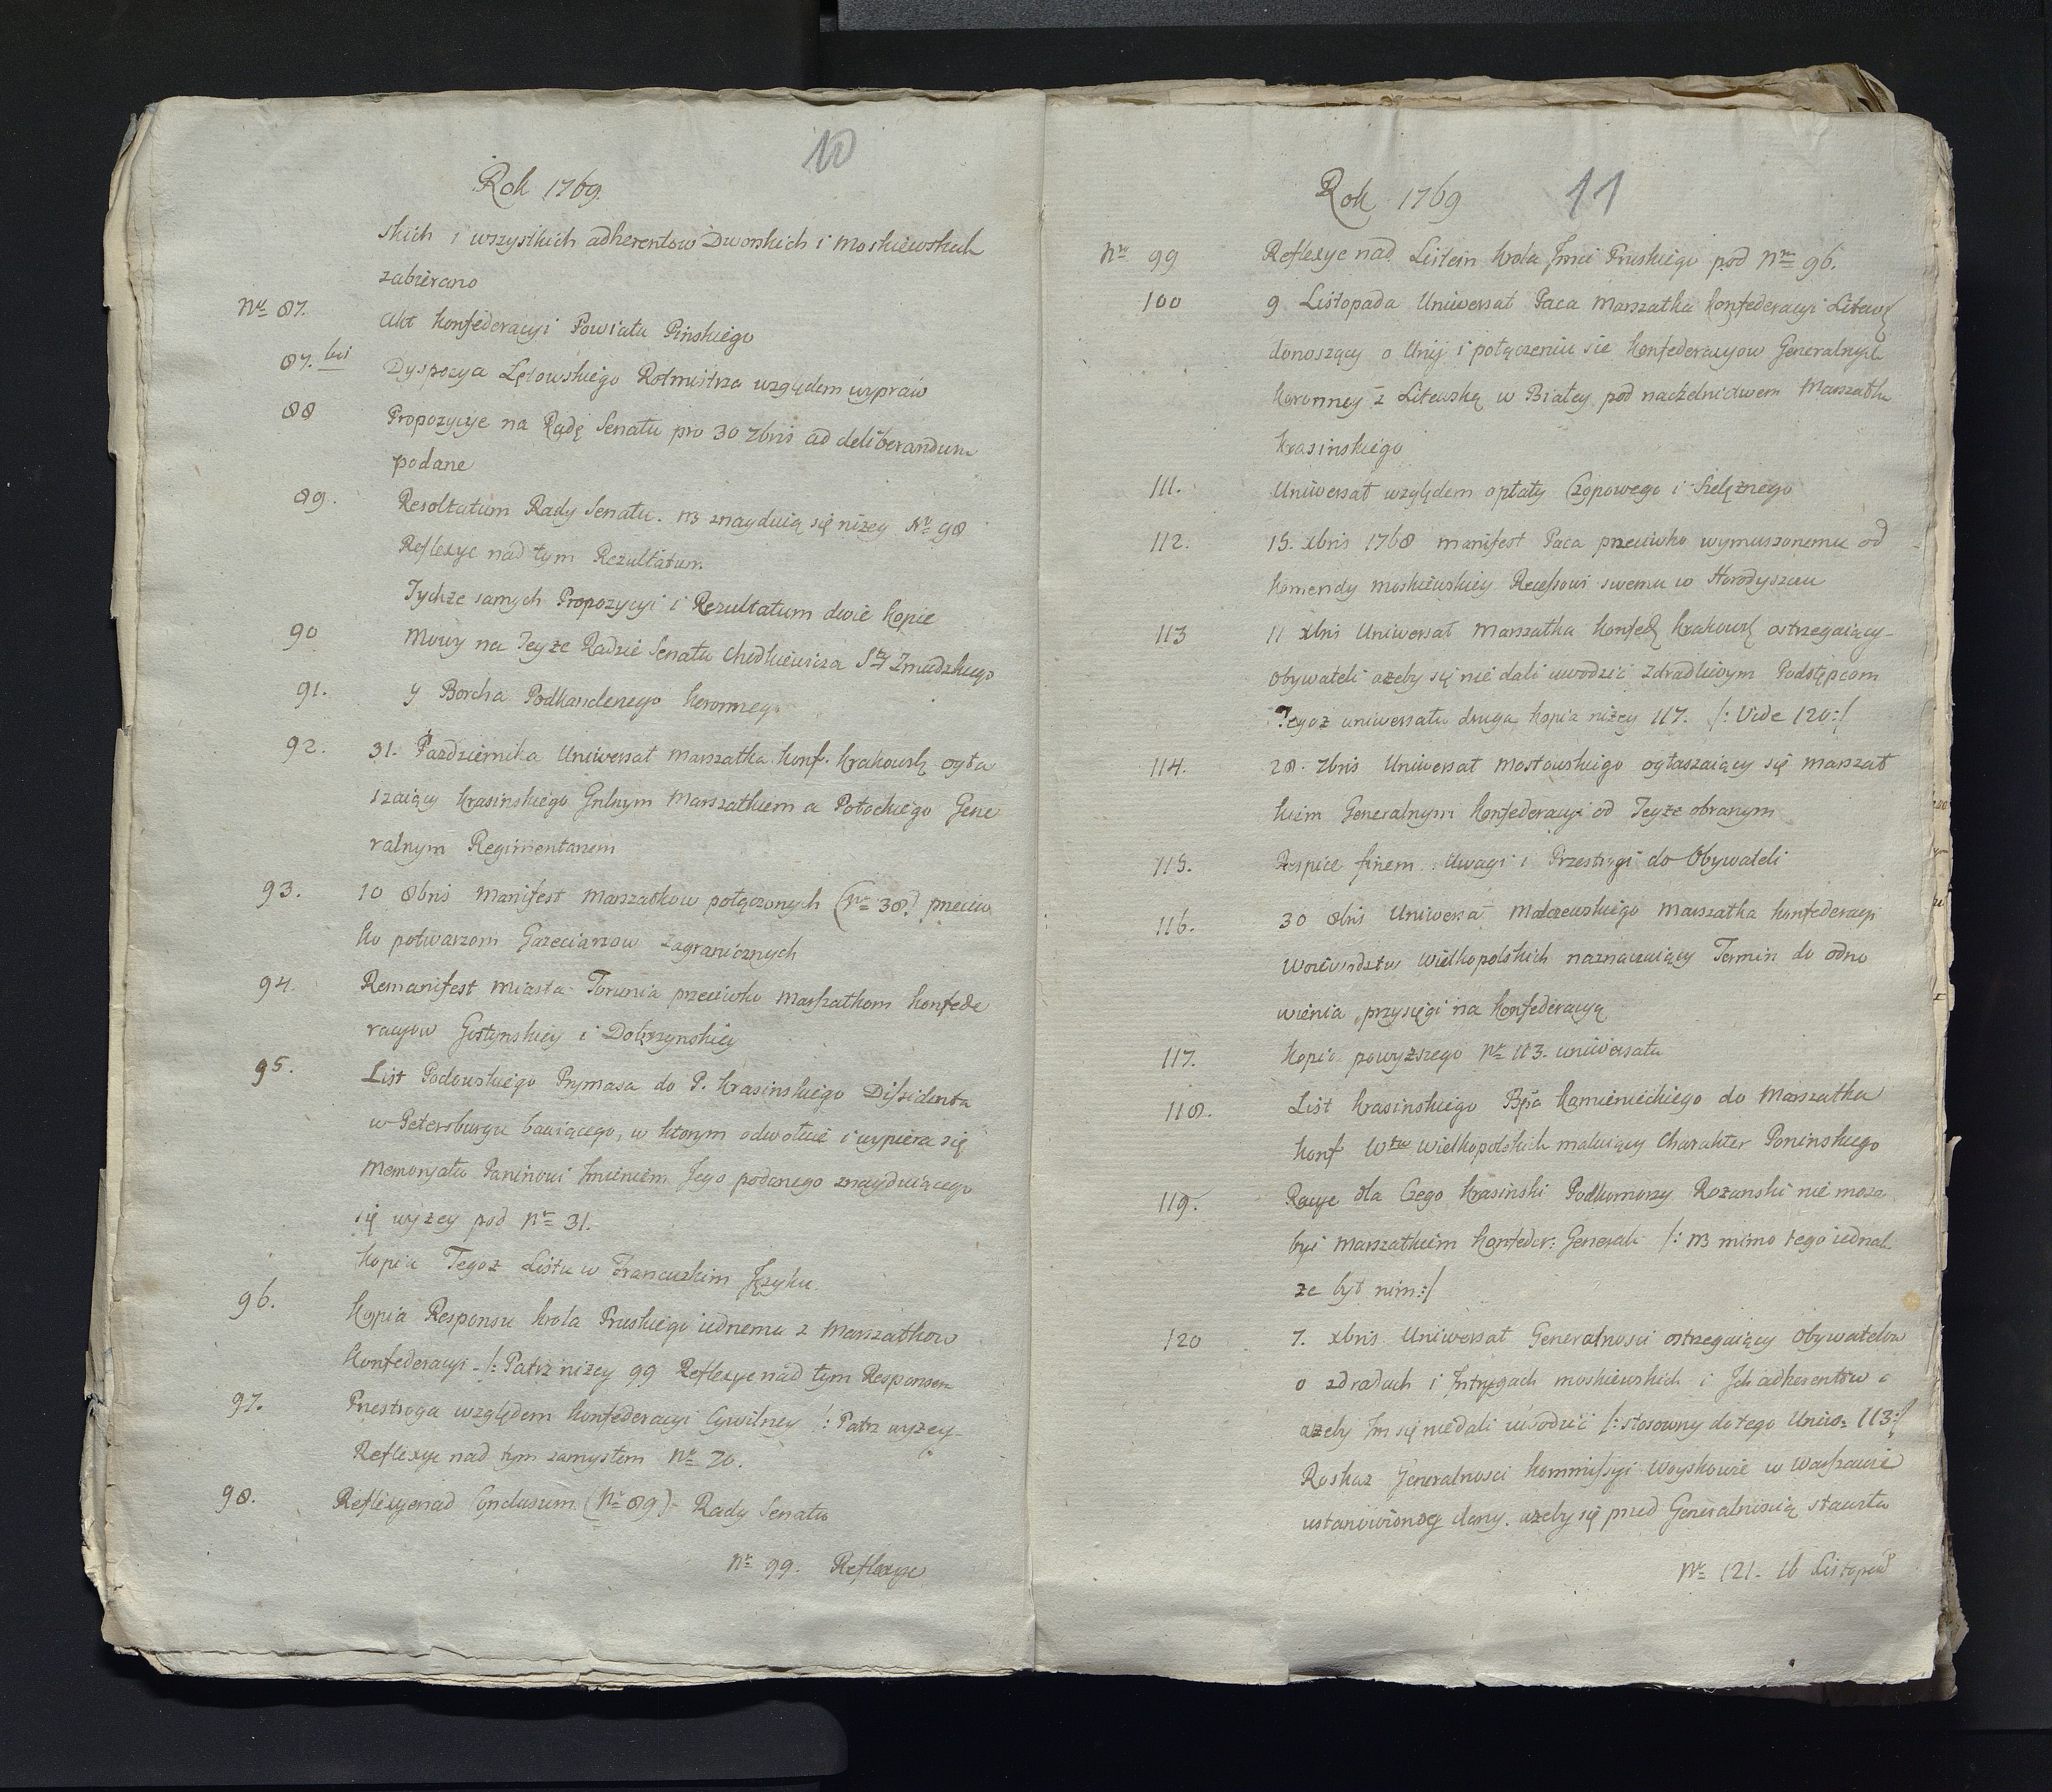 10
Rok 1769.
skich i wszystkich adherentow Dworskich i Moskiewskich
zabierano
Nr 87. Akt Konfederacyi Powiatu Pinskiego
87. bis Dyspozya Lętowskiego Rotmistrza względem wypraw
88 Propozycye na Radę Senatu pro 30 7bris ad deliberandum
podane
89. Resoltatum Rady Senatu. NB znayduią się niżey Nr 98
Reflexye nad tym Rezultatum
Tychze samych Propozycyi i Rezultatum dwie kopie
90 Mowy na Teyże Radzie Senatu Chodkiewicza Sty Zmudzkiego
91. y Borcha Podkanclerzego Koronnego
92. 31. Pazdziernika Uniwersał Marszałka Konf. Krakowsk ogła
szaiący Krasinskiego Gnlnym Marszałkiem a Potockiego Gene
ralnym Regimentarzem
93. 10 8bris Manifest Marszałkow połączonych (Nr 38.) przeciw
ko potwarzom Gazeciarzow Zagranicznych
94. Remanifest Miasta Torunia przeciwko Marszałkom Konfede
racyow Gostynskiey i Dobrzynskiey
95. List Podoskiego Prymasa do P. Krasinskiego Dissidenta
w Petersburgu bawiącego, w ktorym odwołuie i wypiera się
Memoryału Paninowi Imieniem Jego podanego znayduiącego
się wyżey pod Nr 31.
Kopia Tegoż Listu w Francuzkim Języku
96. Kopia Responsu Krola Pruskiego iednemu z Marszałkow
Konfederacyi /: Patrz niżey 99 Reflexye nad tym Responsem
97. Przestroga względem Konfederacyi Cywilney /: Patrz wyżey
Reflexye nad tym zamysłem Nr 70.
98. Reflexye nad Conclusum (Nr 89) Rady Senatu
Nr 99. Reflexye
11
Rok 1769
Nr 99 Reflexye nad Listem Krola Jmci Pruskiego pod Nrm 96.
100 9 Listopada Uniwersał Paca Marszałka Konfederacyi Litewsk
donoszący o Unij i połączeniu się Konfederacyow Generalnych
Koronney z Litewską w Białey pod naczelnictwem Marszałka
Krasinskiego
111. Uniwersał względem opłaty Czopowego i Szelężnego
112. 15. xbris 1768 Manifest Paca przeciwko wymuszonemu od
Komendy Moskiewskiey Recessowi swemu w Horodyszczu
113 11 xbris Uniwersał Marszałka Konfed Krakowsk ostrzegaiący
Obywateli ażeby się nie dali uwodzić Zdradliwym Podstępom
Tegoż uniwersału druga kopia niżey 117. /: Vide 120:/
114. 28. 7bris Uniwersał Mostowskiego ogłaszaiący się Marszał
kiem Generalnym Konfederacyi od Teyże obranym
115. Respice finem. Uwagi i Przestrogi do Obywateli
116. 30 8bris Uniwersał Malczewskiego Marszałka Konfederacyi
Woiewodztw Wielkopolskich naznaczaiący Termin do odno
wienia przysięgi na Konfederacyą
117. Kopia powyższego Nr 113. uniwersału
118. List Krasinskiego Bpa Kamienieckiego do Marszałka
Konf Wtw Wielkopolskich maluiący Charakter Poninskiego
119. Racye dla Czego Krasinski Podkomorzy Rożanski nie może
być Marszałkiem Konfeder: Generali /: NB mimo tego iednak
że był nim:/
120 7. xbris Uniwersał Generalnosci ostrzegaiący Obywatelow
o zdradach i Intrygach moskiewskich i Jch adherentow
ażeby Im się nie dali uwodzić /: stosowny do tego Uniw: 113:/
Roskaz Jeneralnosci Kommissyi Woyskowie w Warszawie
ustanowioney dany. ażeby się przed Generalnoscią stawiła
Nr 121. 16 Listopad